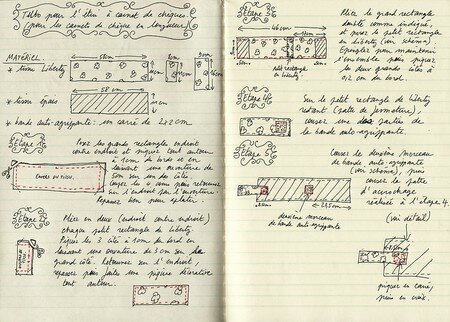 Tuto pour l'étui à carnet de chèques
(pour les carnets de chèque en longueur)
MATÉRIEL:
* tissu Liberty
58 cm
* tissu épais
58 cm
* bande auto-agrippante: un carré de 2x2 cm
Etape 1
Pose les grands rectangles endroit
contre endroit et piquer tout autour
à 1 cm du bord et en
laissant une ouverture de
5 cm sur un côté
coupez les 4 coins puis retourne
sur l'endroit par l'ouverture.
Repassez pour aplatir.
ENVERS DU TISSU
Etape 2
Pliez en deux (endroit contre endroit)
chaque petit rectangle de Liberty.
Piquez les 3 côtés à 1 cm du bord en
laissant une ouverture de 3 cm sur le
grand côté. Retournez sur l'endroit,
repassez puis faites une piqûre décorative
tout autour.
Etape 3
46 cm
Pliez le grand rectangle
doublé comme indiqué,
et posez le petit rectangle
en Liberty (voir schéma)
Épinglez pour maintenir
l'ensemble puis piquez
les deux grands côtés à
0,2 cm du bord.
petit rectangle
en Liberty
Etape 4
Sur le petit rectangle de Liberty
restant (patte de fermeture),
cousez une des parties de
la bande auto-agrippante.
Etape 5
Cousez le deuxième morceau
de bande auto-agrippante
(voir schéma), puis
cousez la patte
d'accrochage
réalisée à l'étape 4.
(voir détail)
deuxième morceau
de bande auto-agrippante
piquez en carré,
puis en croix.